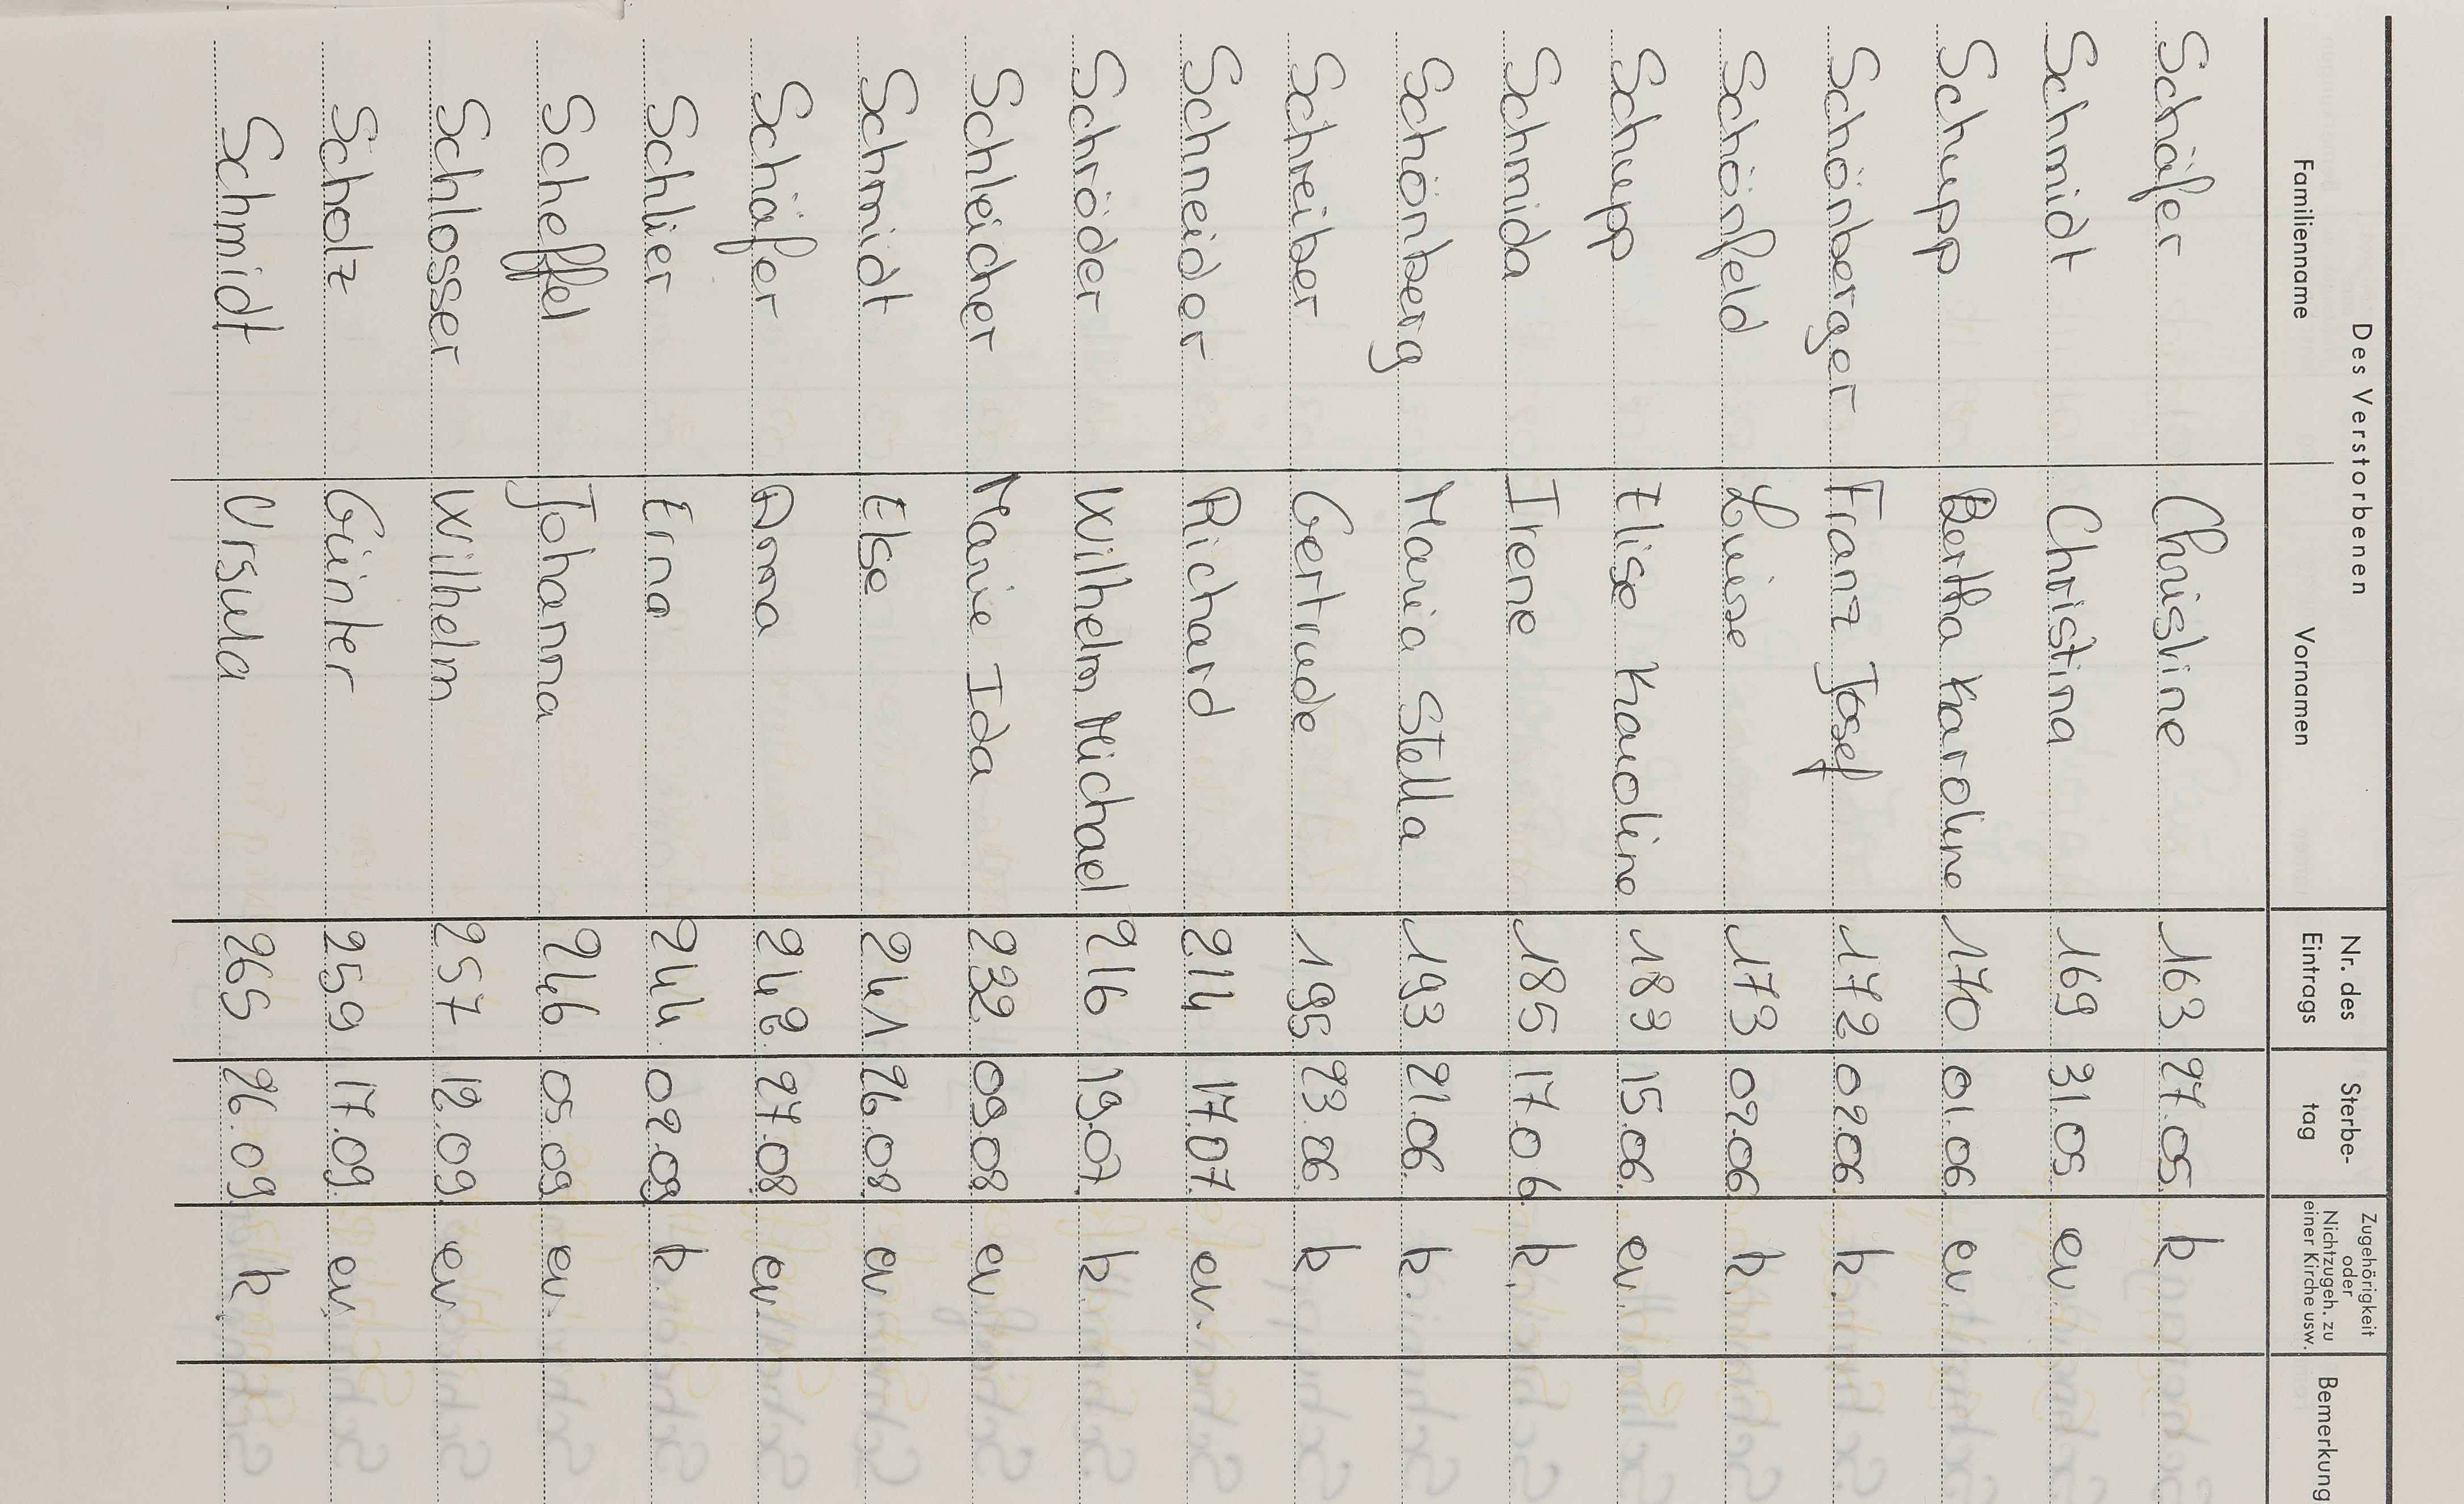 Des Verstorbenen
Familienname Vornamen Nr. des Eintrags Sterbe-tag Zugehörigkeit oder Nichtzugeh. zu einer Kirche usw. Bemerkung
Schäfer Christine 163 27.05. k
Schmidt Christina 169 31.05. ev.
Schupp Bertha Karoline 170 01.06. ev.
Schönberger Franz Josef 172 02.06. k.
Schönfeld Luise 173 02.06 k.
Schupp Elise Karoline 183 15.06. ev.
Schmida Irene 185 17.06. k.
Schönberg Maria Stella 193 21.06. k.
Schreiber Gertrude 195 23.06. k
Schneider Richard 214 17.07. ev.
Schröder Wilhelm Michael 216 19.07. k.
Schleicher Marie Ida 232 09.08. ev.
Schmidt Else 241 26.08. ev.
Schäfer Anna 242 27.08. ev.
Schlier Erna 244. 02.09. k.
Scheffel Johanna 246 05.09. ev.
Schlosser Wilhelm 257 12.09. ev.
Scholz Günter 259 17.09. ev.
Schmidt Ursula 265 26.09. k.